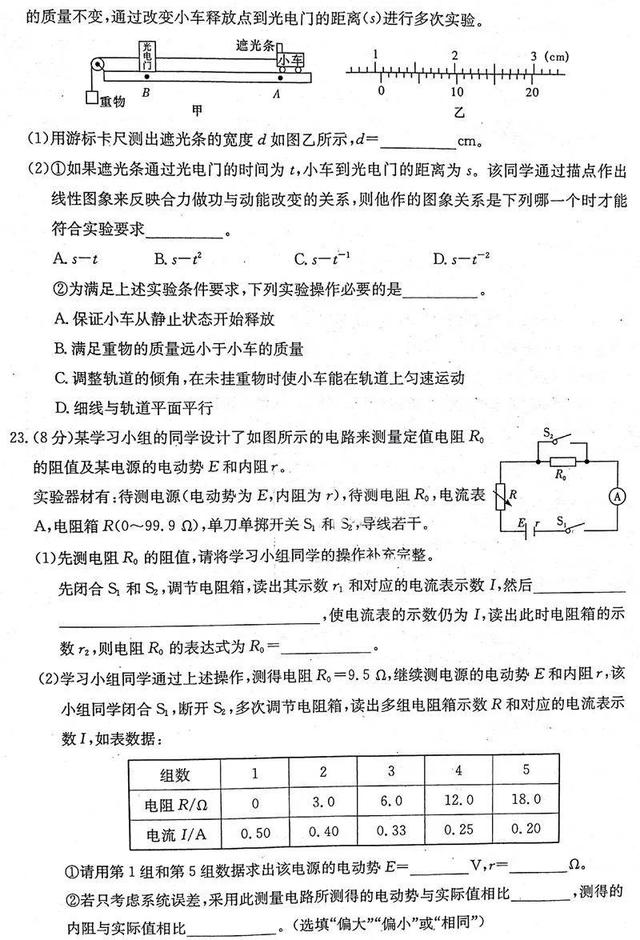 的质量不变,通过改变小车释放点到光电门的距离(s)进行多次实验。
光电门
遮光条
小车
B
A
重物
甲
1 2 3 (cm)
0 10 20
乙
(1)用游标卡尺测出遮光条的宽度 d 如图乙所示,d=________cm。
(2)①如果遮光条通过光电门的时间为 t,小车到光电门的距离为 s。该同学通过描点作出
线性图象来反映合力做功与动能改变的关系,则他作的图象关系是下列哪一个时才能
符合实验要求________。
A. s—t B. s—t² C. s—t⁻¹ D. s—t⁻²
②为满足上述实验条件要求,下列实验操作必要的是________。
A. 保证小车从静止状态开始释放
B. 满足重物的质量远小于小车的质量
C. 调整轨道的倾角,在未挂重物时使小车能在轨道上匀速运动
D. 细线与轨道平面平行
23. (8 分)某学习小组的同学设计了如图所示的电路来测量定值电阻 R₀
的阻值及某电源的电动势 E 和内阻 r。
实验器材有:待测电源(电动势为 E,内阻为 r),待测电阻 R₀,电流表
A,电阻箱 R(0～99.9 Ω),单刀单掷开关 S₁ 和 S₂,导线若干。
S₂
R₀
R
A
E r S₁
(1)先测电阻 R₀ 的阻值,请将学习小组同学的操作补充完整。
先闭合 S₁ 和 S₂,调节电阻箱,读出其示数 r₁ 和对应的电流表示数 I,然后________
________________________,使电流表的示数仍为 I,读出此时电阻箱的示
数 r₂,则电阻 R₀ 的表达式为 R₀=________。
(2)学习小组同学通过上述操作,测得电阻 R₀=9.5 Ω,继续测电源的电动势 E 和内阻 r,该
小组同学闭合 S₁,断开 S₂,多次调节电阻箱,读出多组电阻箱示数 R 和对应的电流表示
数 I,如表数据:
组数 1 2 3 4 5
电阻 R/Ω 0 3.0 6.0 12.0 18.0
电流 I/A 0.50 0.40 0.33 0.25 0.20
①请用第 1 组和第 5 组数据求出该电源的电动势 E=______V,r=______Ω。
②若只考虑系统误差,采用此测量电路所测得的电动势与实际值相比______,测得的
内阻与实际值相比________。(选填“偏大”“偏小”或“相同”)